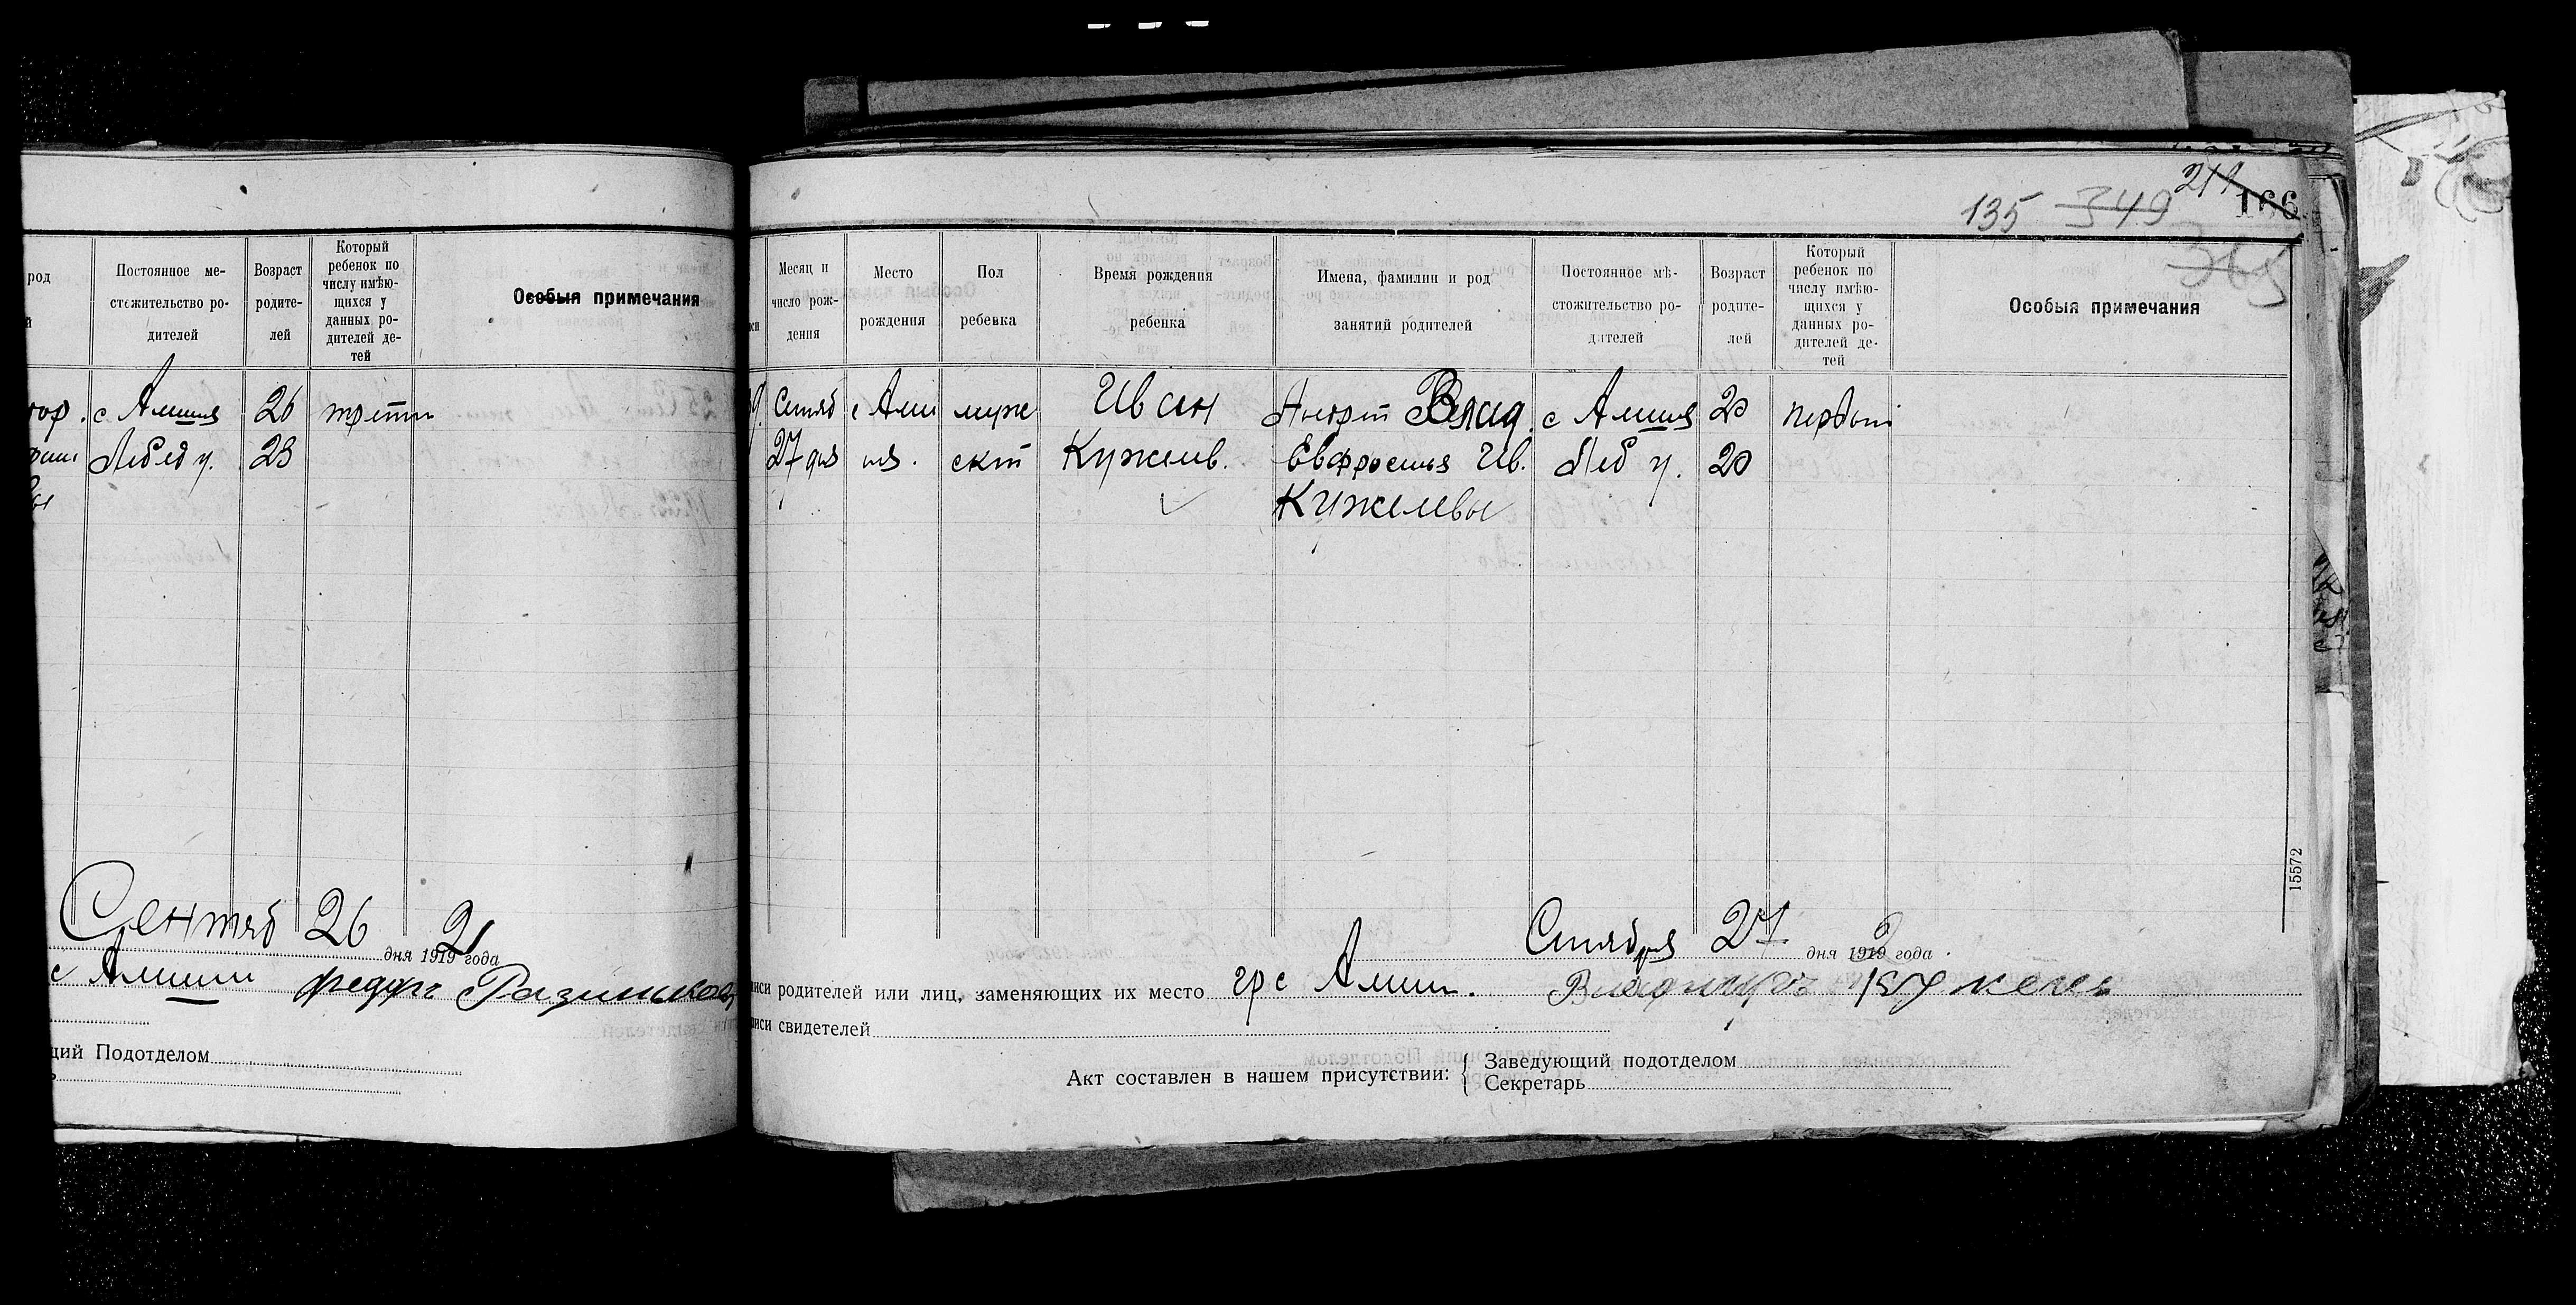 135 349 211 166
365
род
й
Постоянное ме-
стожительство ро-
дителей
Возраст
родите-
лей
Который
ребенок по
числу имѣю-
щихся у
данных ро-
дителей де-
тей
Особыя примечания
с Амшя 26 трети
Лебед у. 23
Сентяб 26 дня 1919 21 года
с Амши Федор Разиньков
щий Подотделом
Месяц и
число рож-
дения
Место
рождения
Пол
ребенка
Время рождения
ребенка
Имена, фамилии и род
занятий родителей
Постоянное мѣ-
стожительство ро-
дителей
Возраст
родите-
лей
Который
ребенок по
числу имѣю-
щихся у
данных ро-
дителей де-
тей
Особыя примечания
Сентяб с Амш муж Иван Влад. с Амшя 20 первый
27 дня ия. скт Кужелв. Евфросиня Ив. Леб у. 20
Кужелевы
15572
Сентября 27 дня 1919 года.
иси родителей или лиц, заменяющих их место гр с Амши. Владимир Кужелев
иси свидетелей
Акт составлен в нашем присутствии:
Заведующий подотделом
Секретарь